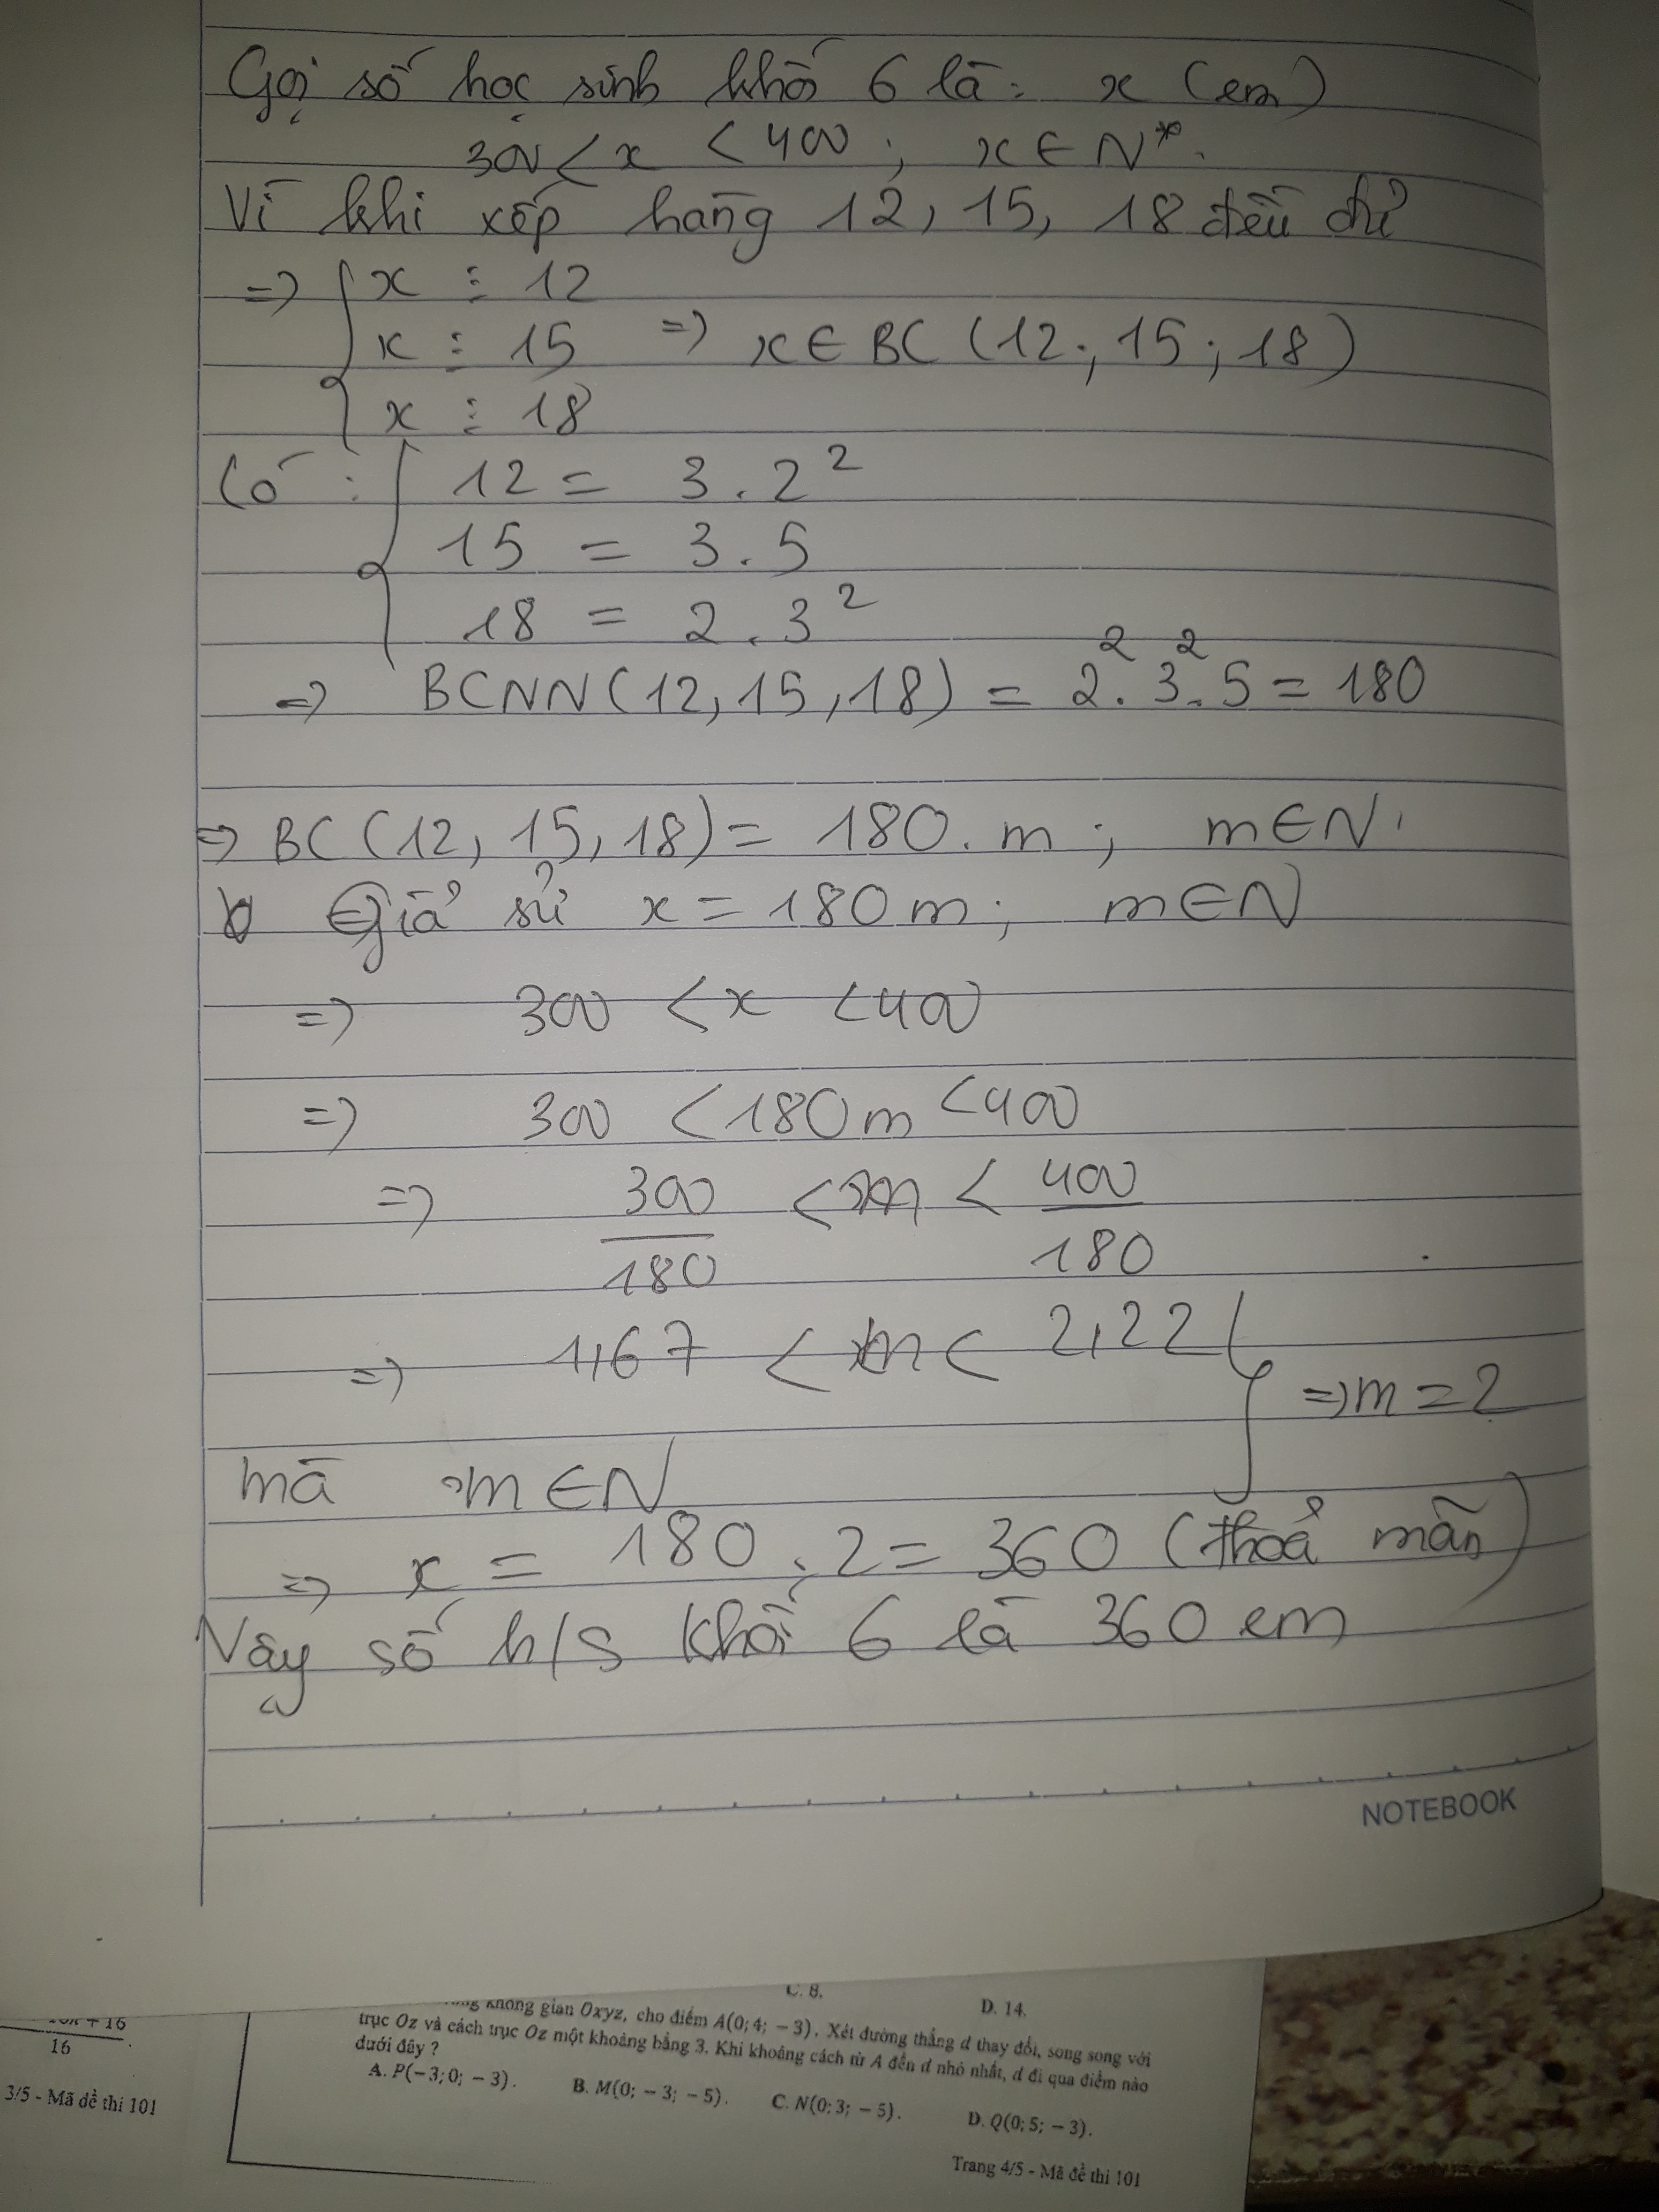 Gọi số học sinh khối 6 là: x (em)
300 < x < 400 ; x ∈ N*.
Vì khi xếp hàng 12, 15, 18 đều đủ
=> { x ⋮ 12
x ⋮ 15 => x ∈ BC (12 ; 15 ; 18)
x ⋮ 18
Có : { 12 = 3 . 2²
15 = 3 . 5
18 = 2 . 3²
=> BCNN (12, 15, 18) = 2² . 3² . 5 = 180
=> BC (12, 15, 18) = 180 . m ; m ∈ N.
Giả sử x = 180 m ; m ∈ N
=> 300 < x < 400
=> 300 < 180 m < 400
=> 300/180 < m < 400/180
=> 1,67 < m < 2,22 } => m = 2
mà m ∈ N
=> x = 180 . 2 = 360 (thoả mãn)
Vậy số h/s khối 6 là 360 em
NOTEBOOK
C. 8.
D. 14.
không gian Oxyz, cho điểm A(0; 4; −3). Xét đường thẳng d thay đổi, song song với
trục Oz và cách trục Oz một khoảng bằng 3. Khi khoảng cách từ A đến d nhỏ nhất, d đi qua điểm nào
dưới đây ?
A. P(−3; 0; −3).
B. M(0; −3; −5).
C. N(0; 3; −5).
D. Q(0; 5; −3).
Trang 4/5 - Mã đề thi 101
+ 16
16
3/5 - Mã đề thi 101